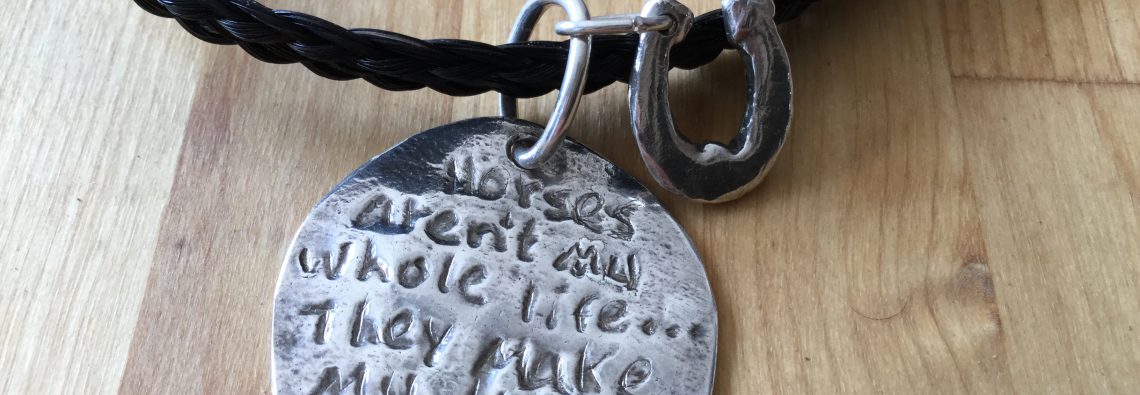 Horses
aren't My
whole life...
They Make
My